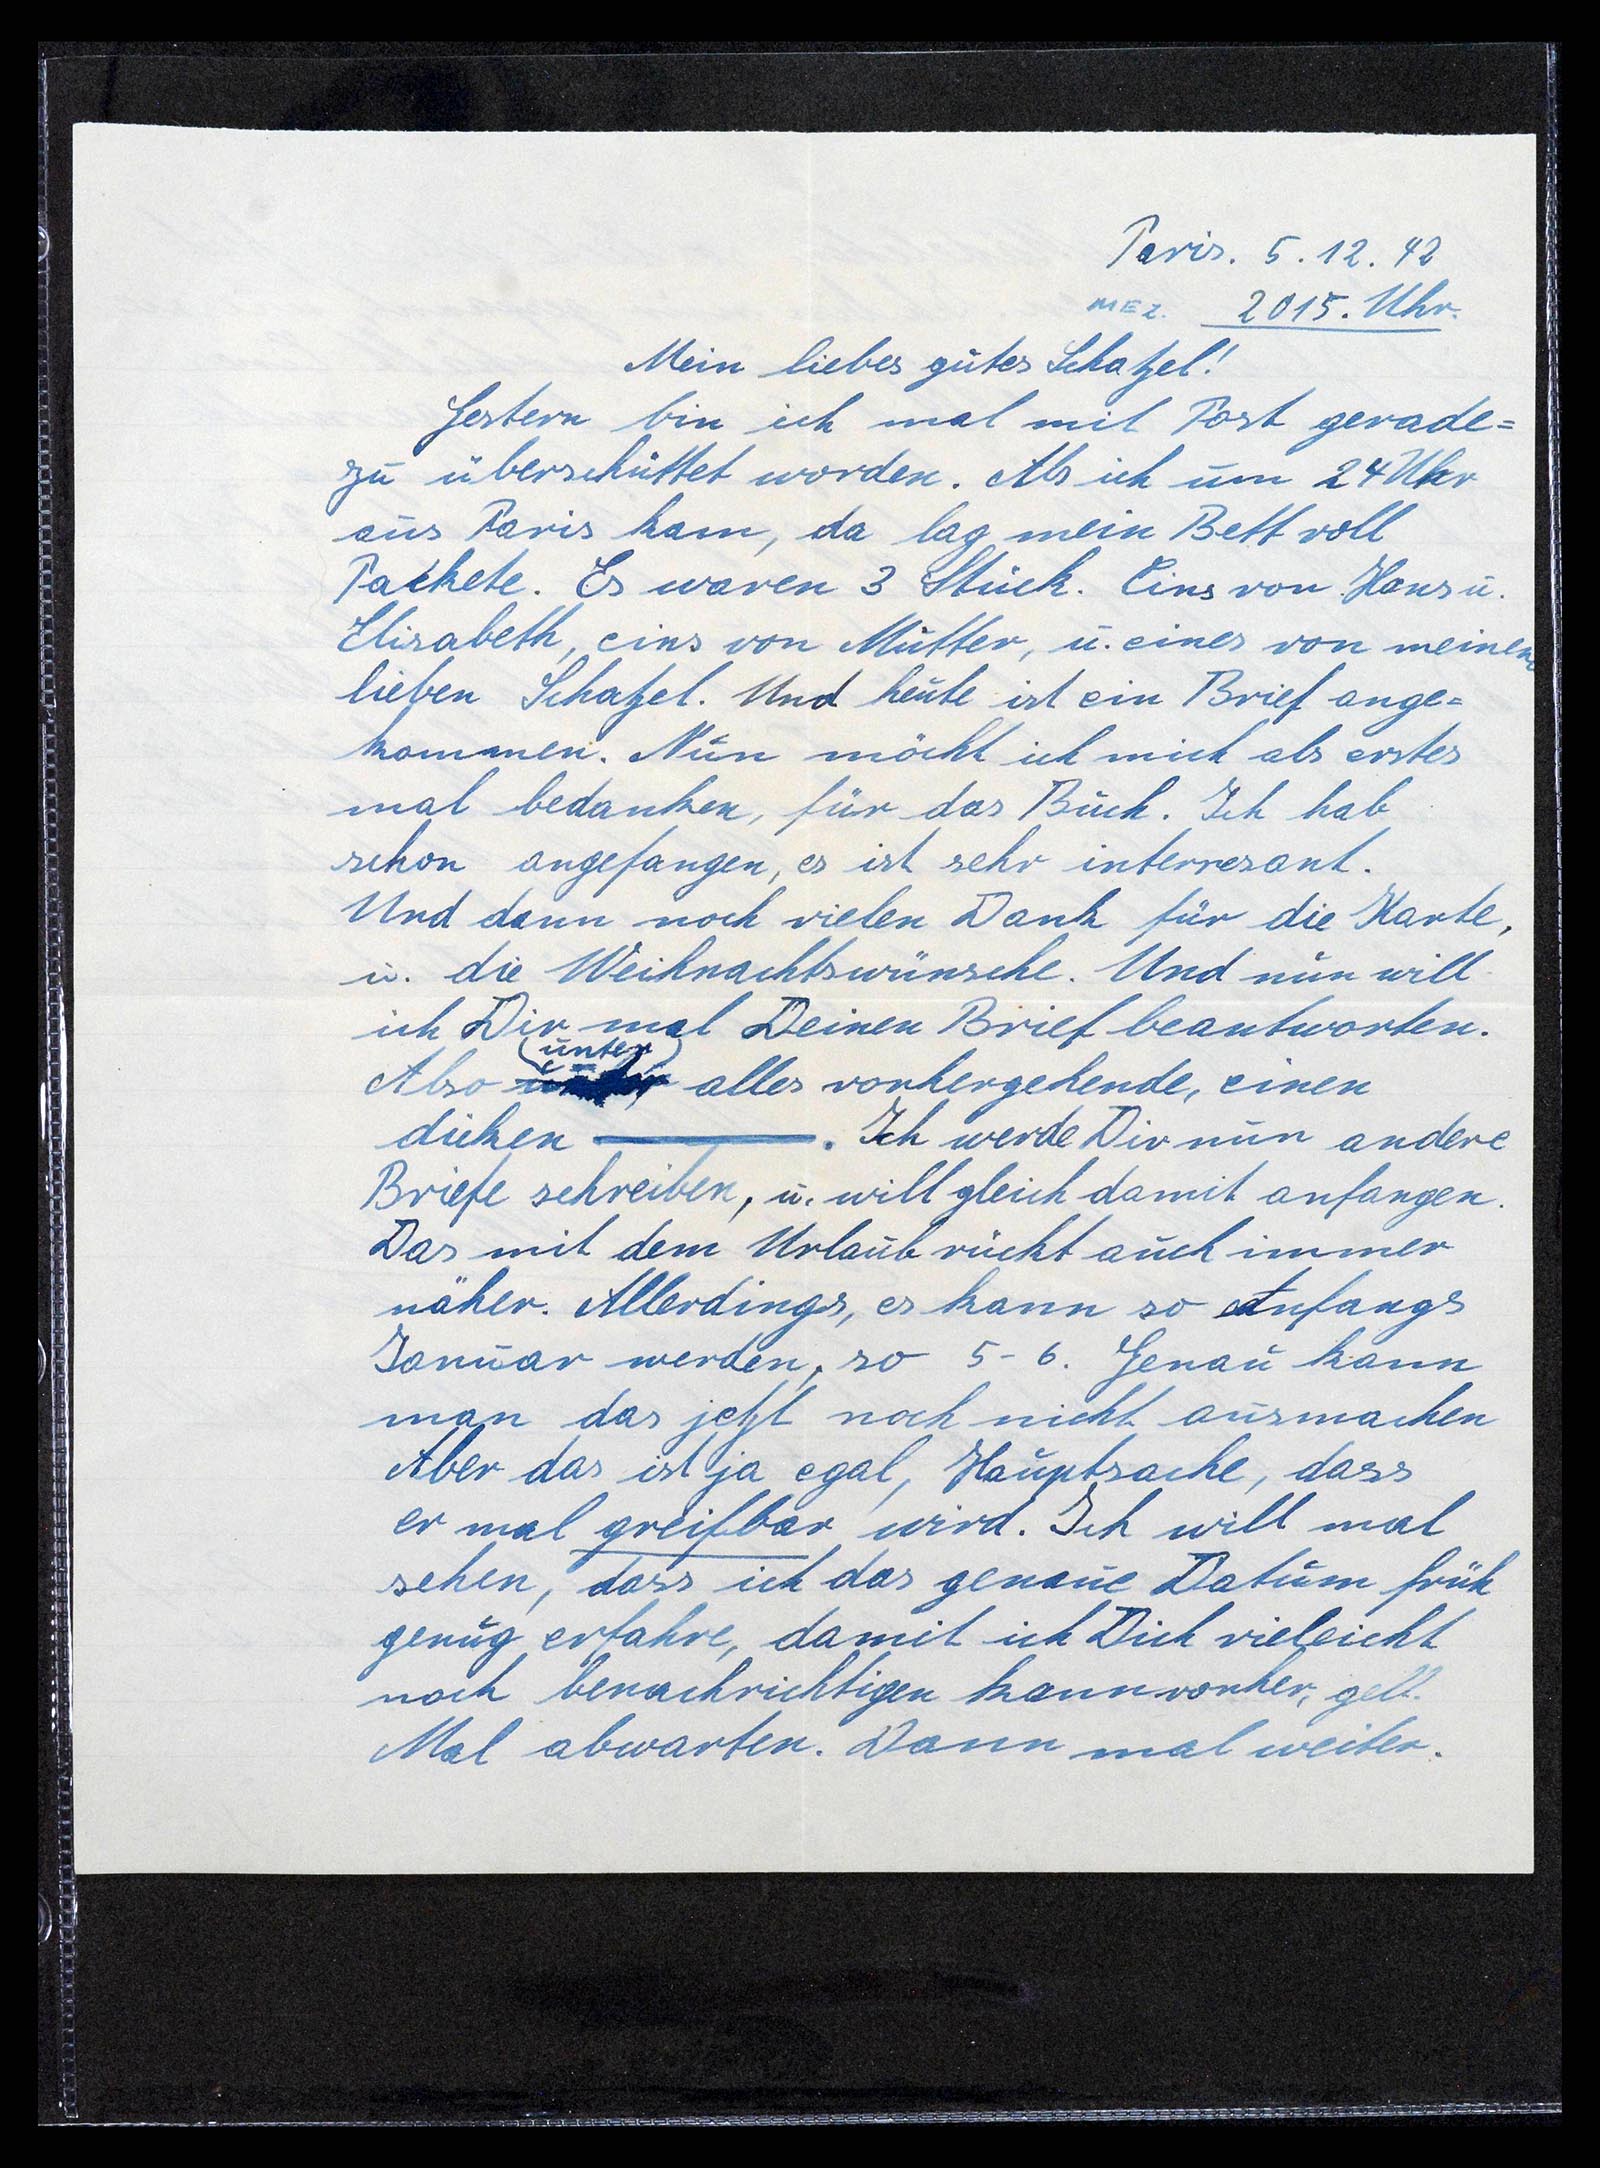 Paris. 5.12.42
MEZ. 2015. Uhr.
Mein liebes gutes Schatzel!
Gestern bin ich mal mit Post gerade=
zu überschüttet worden. Als ich um 24 Uhr
aus Paris kam, da lag mein Bett voll
Packete. Es waren 3 Stück. Eins von Hans u.
Elisabeth, eins von Mutter, u. eines von meinem
lieben Schatzel. Und heute ist ein Brief ange=
kommen. Nun möcht ich mich als erstes
mal bedanken, für das Buch. Ich hab
schon angefangen, es ist sehr interresant.
Und dann noch vielen Dank für die Karte,
u. die Weihnachtswünsche. Und nun will
ich Dir mal Deinen Brief beantworten.
(unter)
Also alles vorhergehende, einen
dicken ———. Ich werde Dir nun andere
Briefe schreiben, u. will gleich damit anfangen.
Das mit dem Urlaub rückt auch immer
näher. Allerdings, es kann so Anfangs
Januar werden, so 5-6. Genau kann
man das jetzt noch nicht ausmachen
Aber das ist ja egal, Hauptsache, dass
er mal greifbar wird. Ich will mal
sehen, dass ich das genaue Datum früh
genug erfahre, damit ich Dich vieleicht
noch benachrichtigen kann vorher, gell.
Mal abwarten. Dann mal weiter.